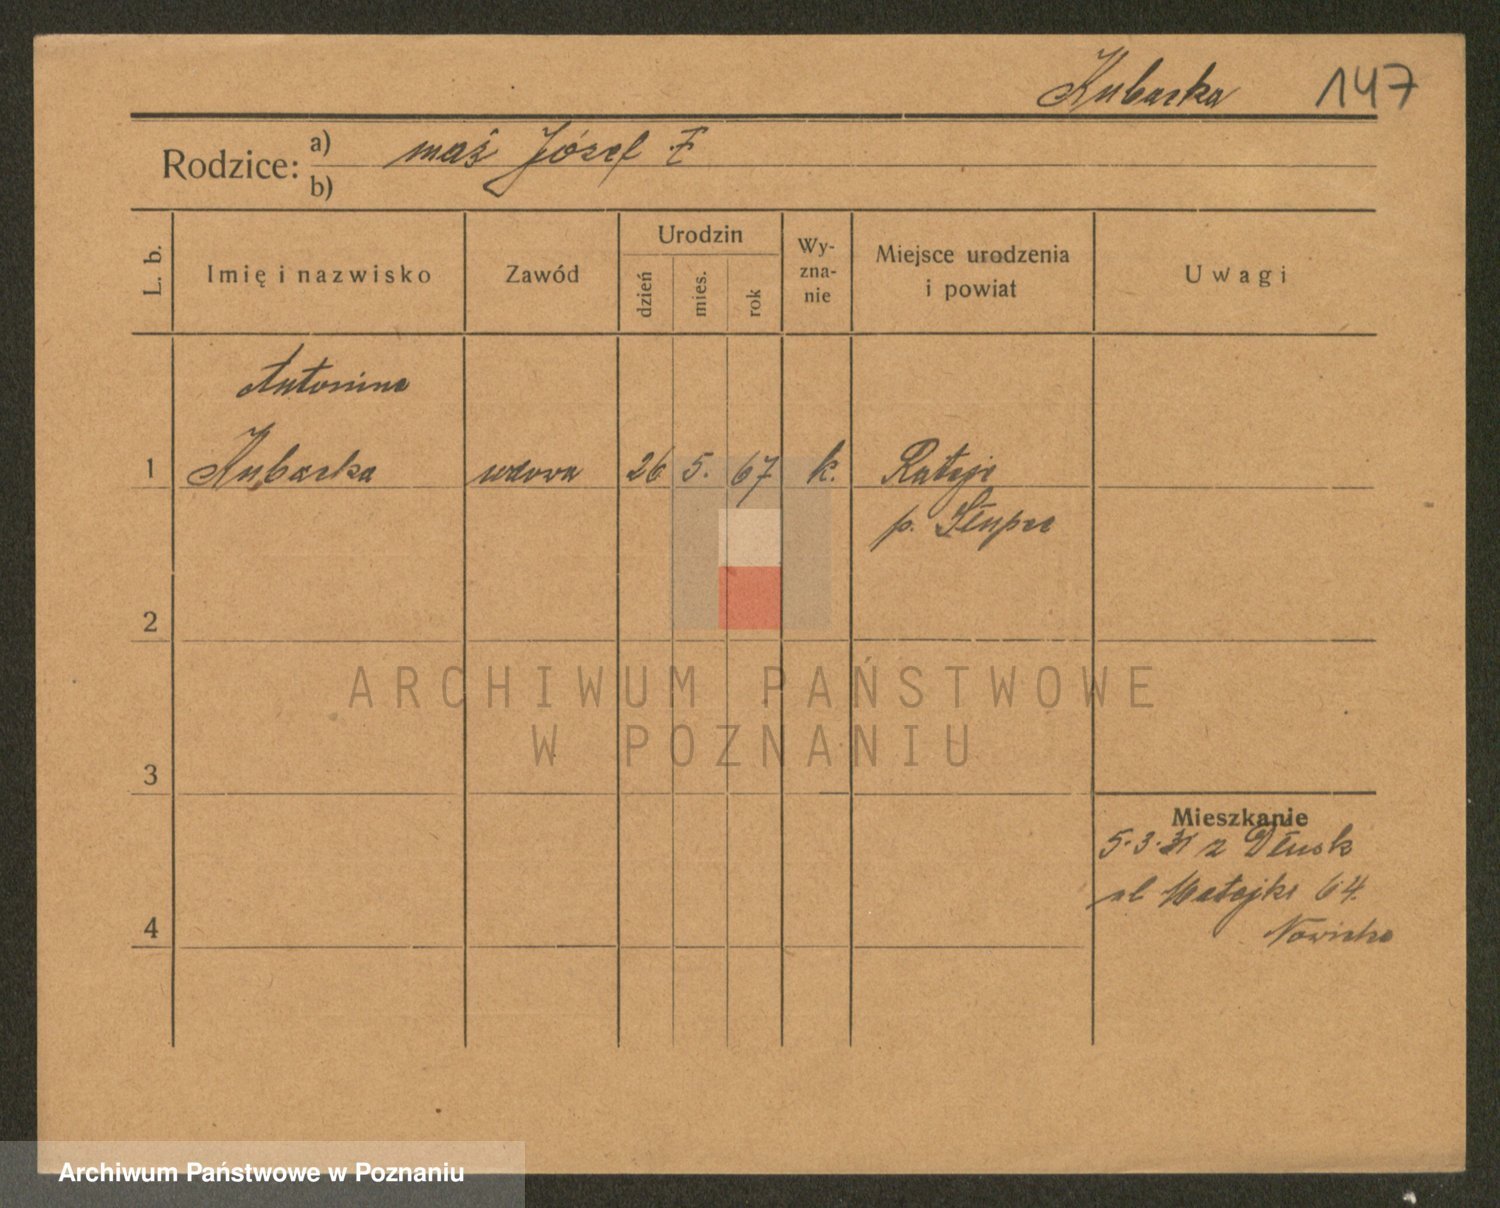 Kubacka 147
Rodzice: a) mąż Józef
b)
L. b.
Imię i nazwisko
Zawód
Urodzin
dzień
mies.
rok
Wy-
zna-
nie
Miejsce urodzenia
i powiat
Uwagi
Antonina
1 Kubacka wdowa 26 5. 67 k. Rataje
p. Słupca
2
3
4
Mieszkanie
5.3.31 z Dłusk
ul Matejki 64.
Nowicka
ARCHIWUM PAŃSTWOWE
W POZNANIU
Archiwum Państwowe w Poznaniu